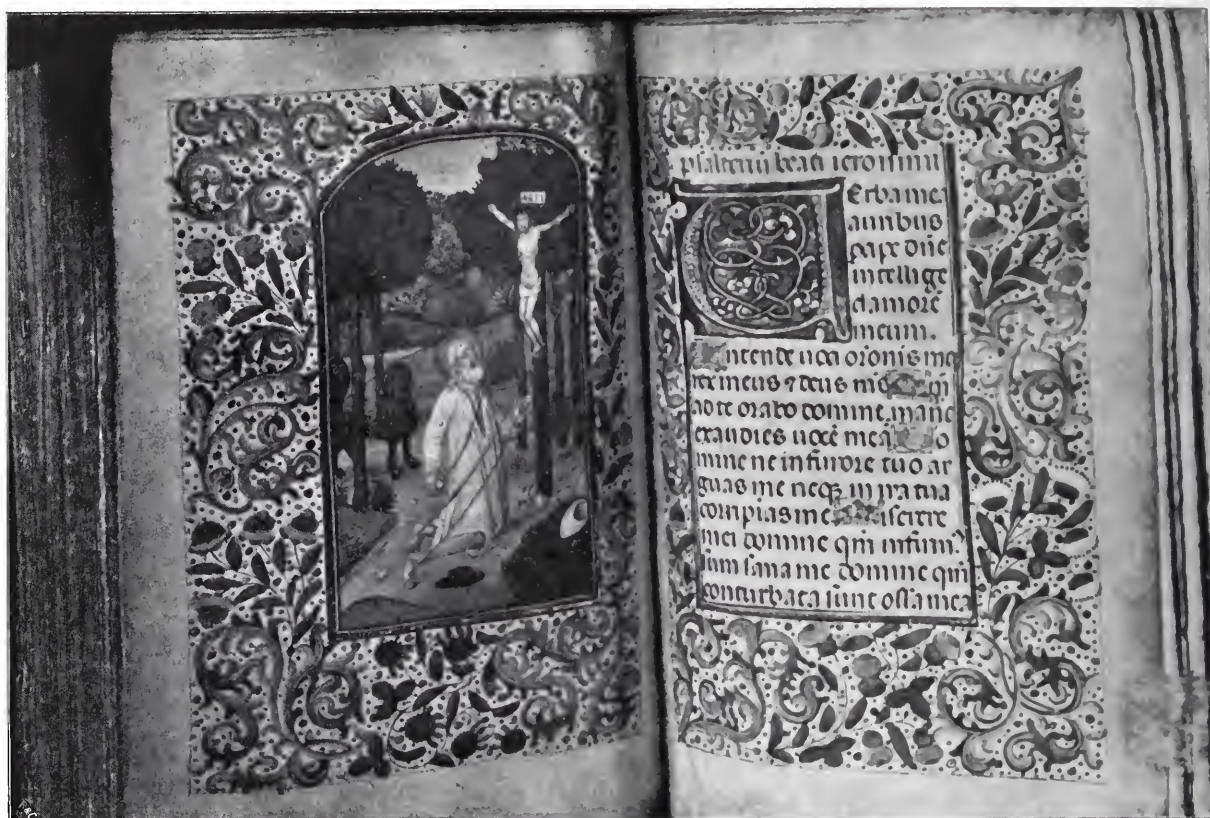 INRI
psalterium beati ieronimi
Verba mea
auribus
p̱cipe dn̄e
intellige
clamorē
meum.
Intende uoci or̄onis mee
rex meus ⁊ deus me qm̄
ad te orabo domine mane
exaudies uocē meā o
mine ne in furore tuo ar
guas me neqꝫ in ira tua
corripias me iserere
mei domine qm̄ infirmꝰ
sum sana me domine qm̄
conturbata sunt ossa mea